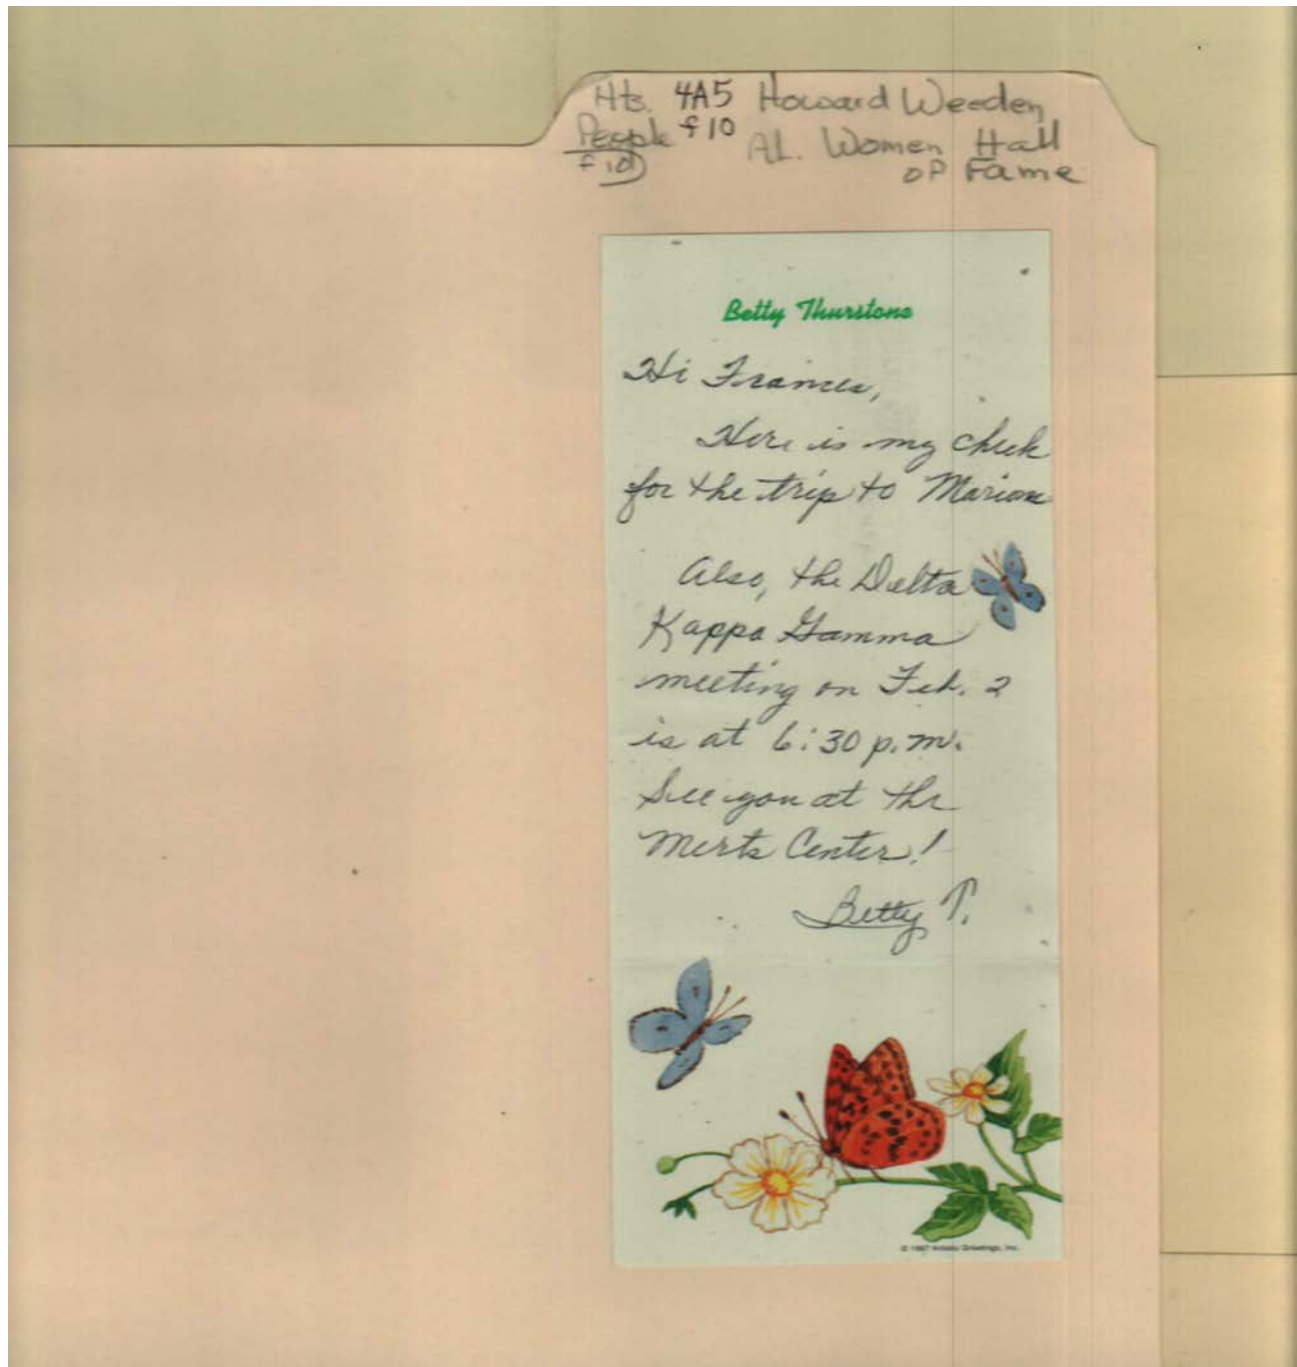 Hts. 4A5 Howard Weeden
People f10 AL. Women Hall
f10 of Fame
Betty Thurstone
Hi Frances,
Here is my check
for the trip to Marion
Also, the Delta
Kappa Gamma
meeting on Feb. 2
is at 6:30 p.m.
See you at the
Merts Center!
Betty T.
© 1987 Artistic Greetings, Inc.